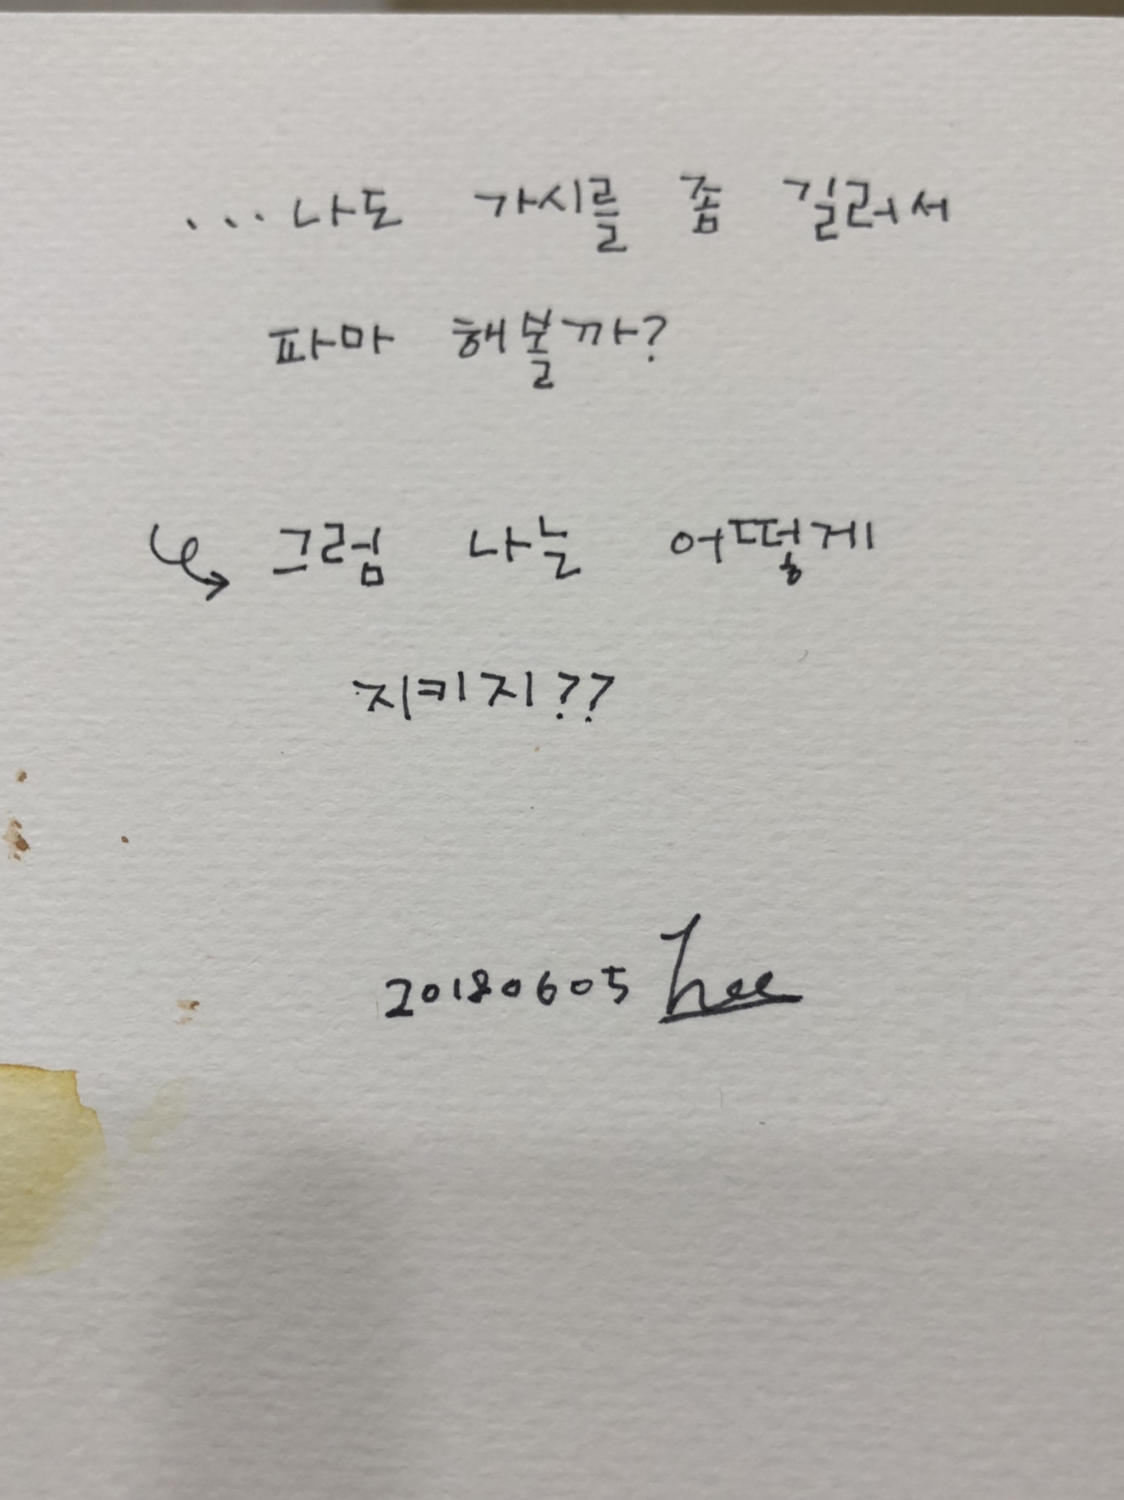 ...나도 가시를 좀 길러서
파마 해볼까?
그럼 나는 어떻게
지키지??
20180605 hee